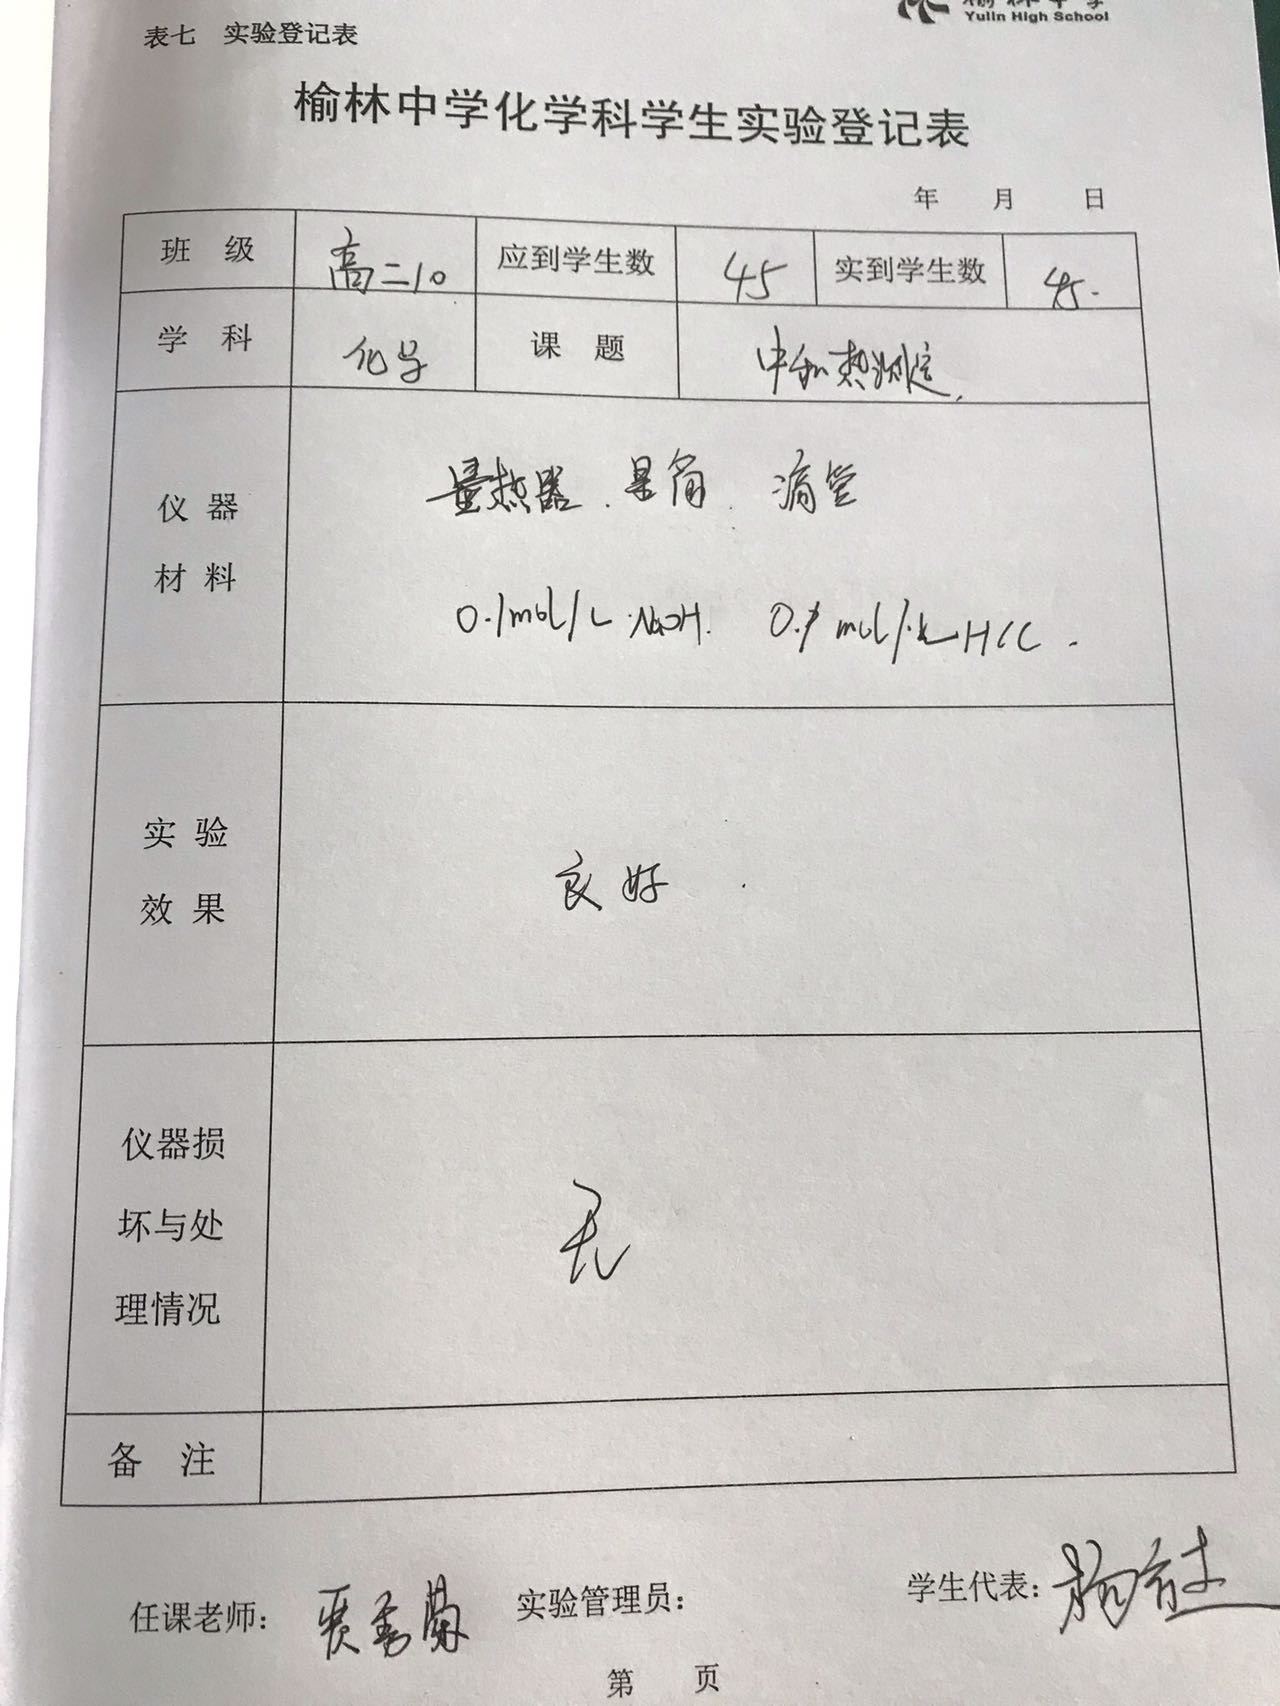 Yulin High School
表七 实验登记表
榆林中学化学科学生实验登记表
年 月 日
班 级 高二10 应到学生数 45 实到学生数 45.
学 科 化学 课 题 中和热测定
仪 器
材 料
量热器. 量筒. 滴管
0.1mol/L NaOH. 0.1 mol/L HCl.
实 验
效 果
良好.
仪器损
坏与处
理情况
无
备 注
任课老师: 贾秀菊 实验管理员: 学生代表: 杨
第 页